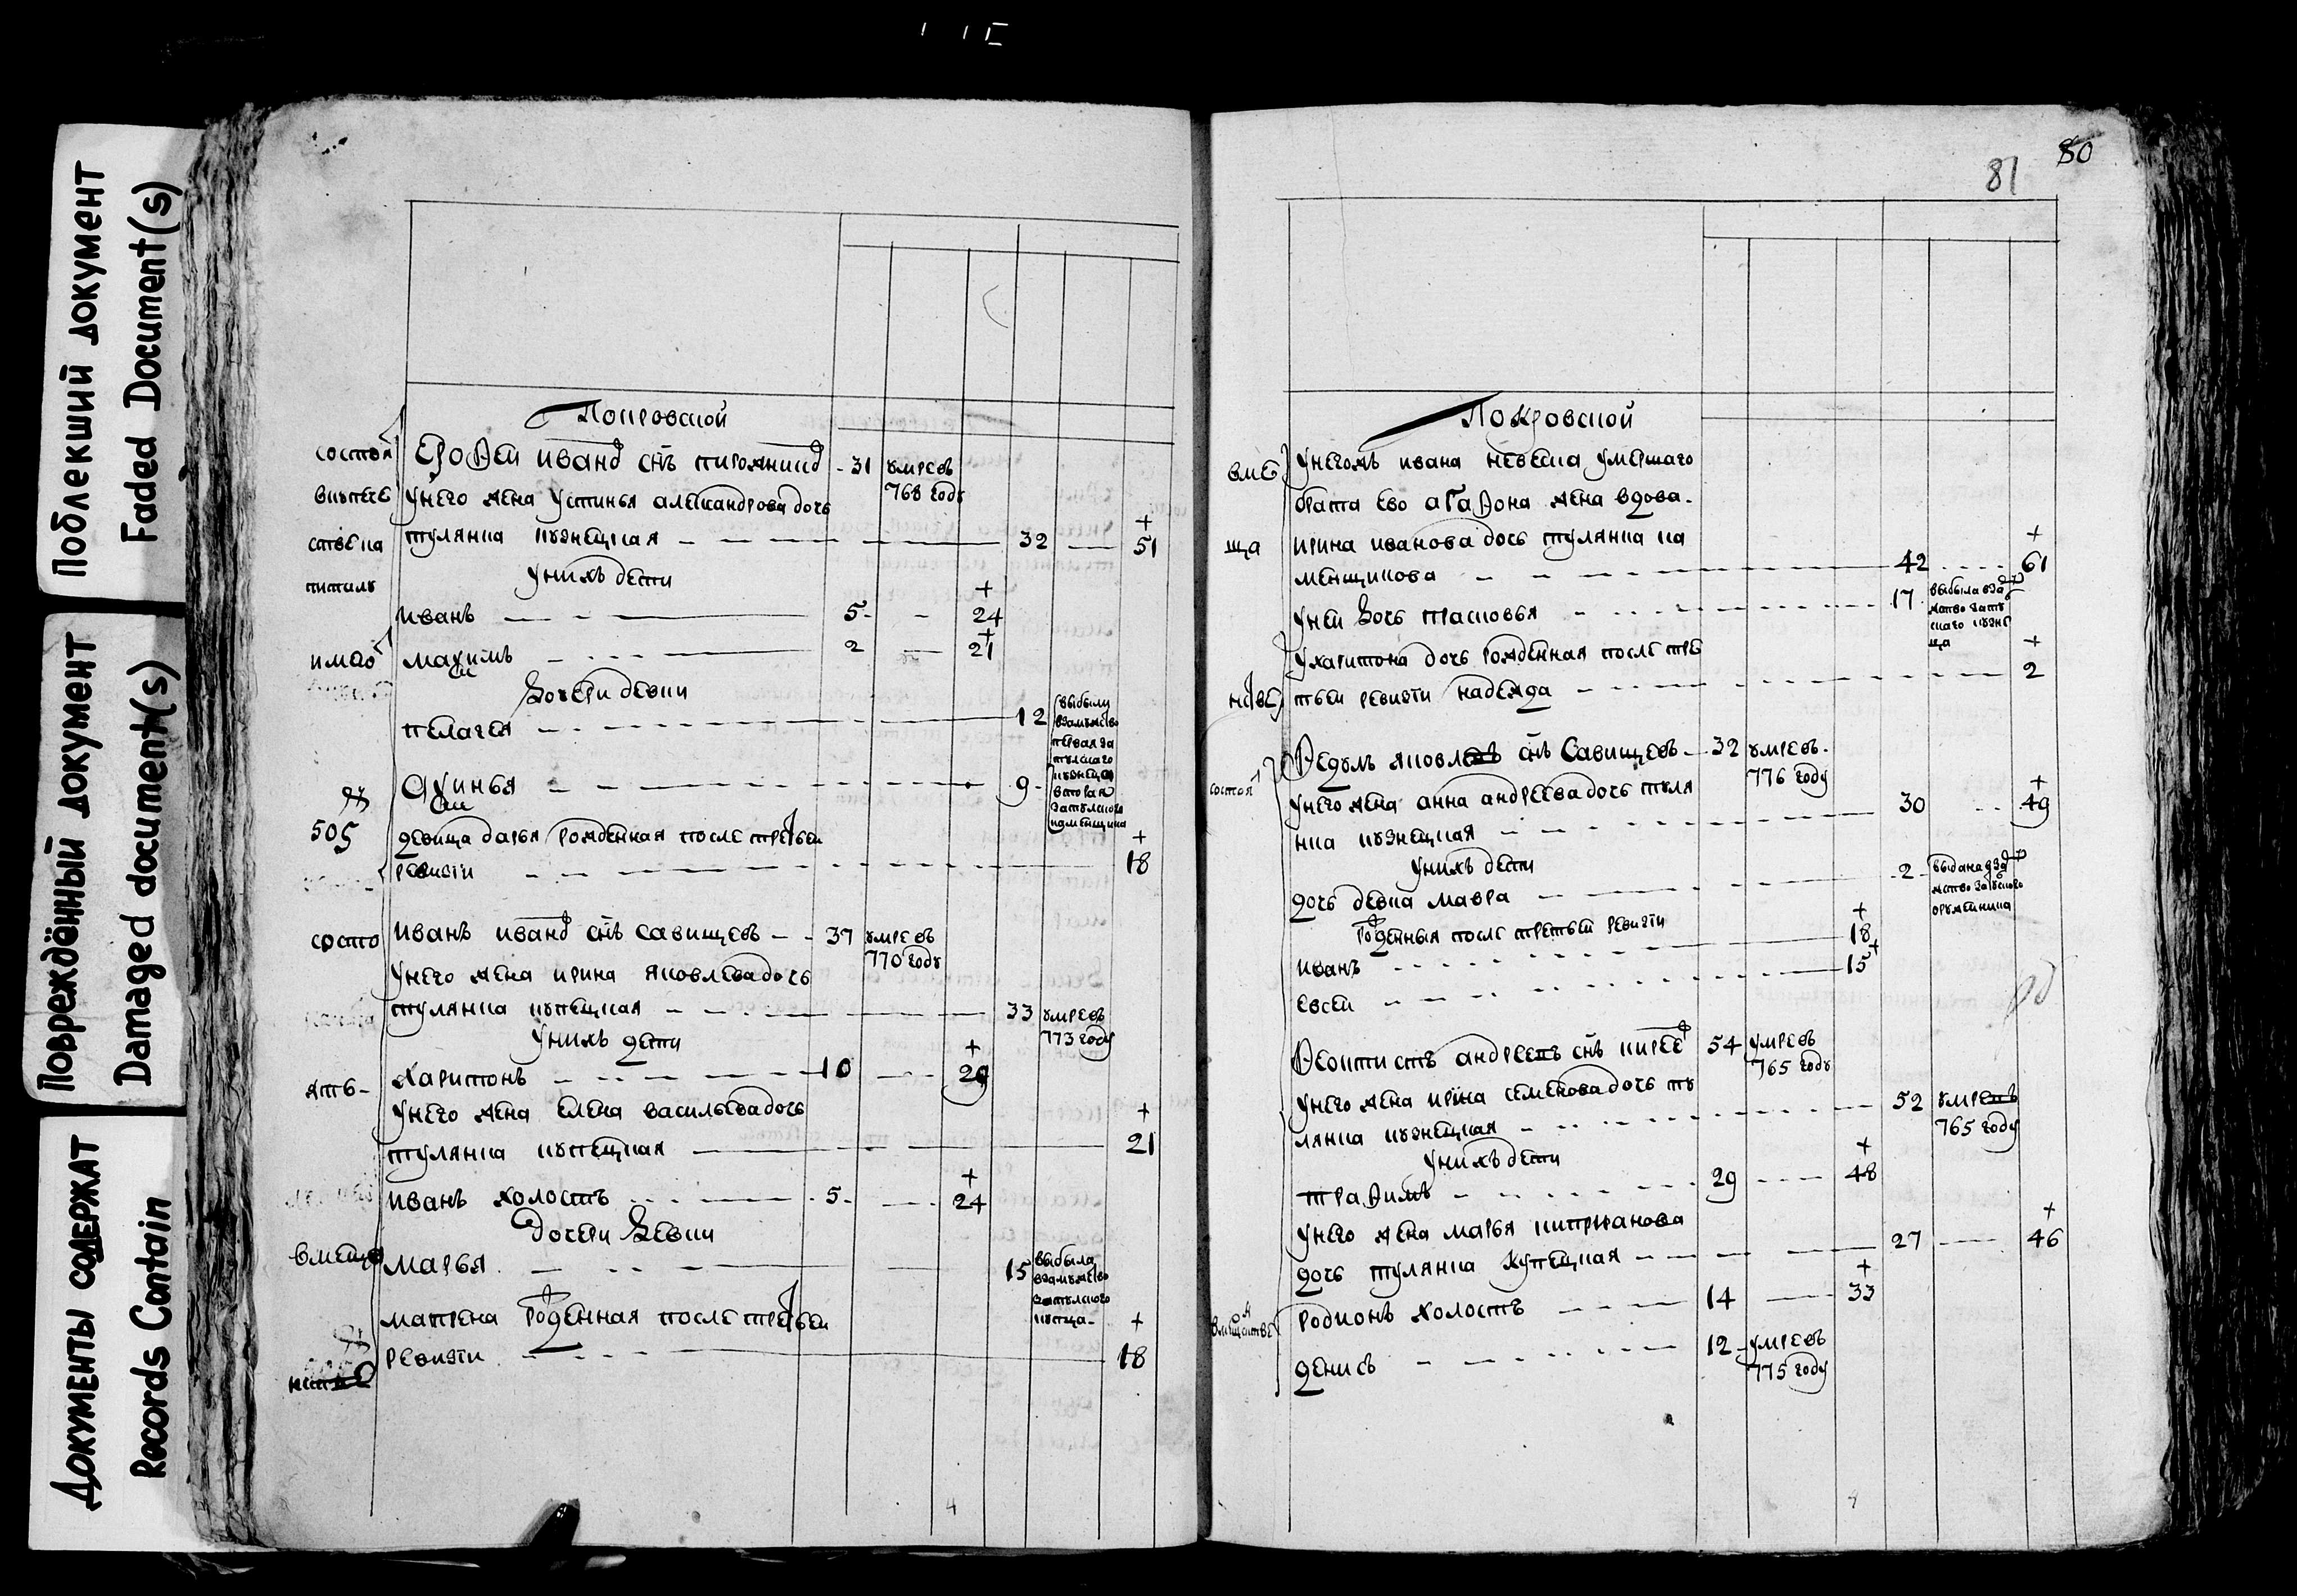 Поблекший документ
Faded Document(s)
Повреждённый документ
Damaged document(s)
Документы содержат
Records Contain
Покровской
Ерофеи иванов снъ пирожников 31 умре въ
768 году
У него жена устинья александрова дочь
тулянка кузнецкая 32 51
У нихъ дети
иванъ 5 24
максимъ 2 21
Дочери девки
пелагея 12 выбыли
взамужство
первая за
тулского
кузнеца
вторая
за тулского
каменщика
аксинья 9
девица дарья рожденная после третьеи
ревизіи 18
Иванъ иванов снъ савищевъ 37 умре въ
770 году
У него жена ирина яковлева дочь
тулянка купецкая 33 умре въ
773 году
У нихъ дети
Харитонъ 10 29
У него жена елена васильева дочь
тулянка купецкая 21
иванъ холостъ 5 24
Дочери девки
марья 15 выбыла
взамужство
за тулского
купца
матрена рожденная после третьеи
ревизіи 18
состоя
в купече
ства
505
состо
ять
80
81
Покровской
У него жъ ивана невестка умершаго
брата ево агафона жена вдова
ирина иванова дочь тулянка ка
менщикова 42 61
У неи дочь прасковья 17 выбыла вза
мство за ту
скаго кузне
ца
У харитона дочь рожденная после тре
тьеи ревизіи надежда 2
Федулъ яковлевъ снъ Савищевъ 32 умре въ
776 году
У него жена анна андреева дочь туля
нка кузнецкая 30 49
У нихъ дети
дочь девка мавра 2 выдана вза
мство за тулского
оружеиника
Рожденныя после третьеи ревизіи
иванъ 18
евсеи 15
Феоктистъ андреевъ снъ кирее 54 умре въ
765 году
У него жена ирина семенова дочь ту
лянка кузнецкая 52 умре въ
765 году
У нихъ дети
трафимъ 29 48
У него жена марья киприянова
дочь тулянка купецкая 27 46
родионъ холостъ 14 33
денисъ 12 умре въ
775 году
вме
ща
состоя